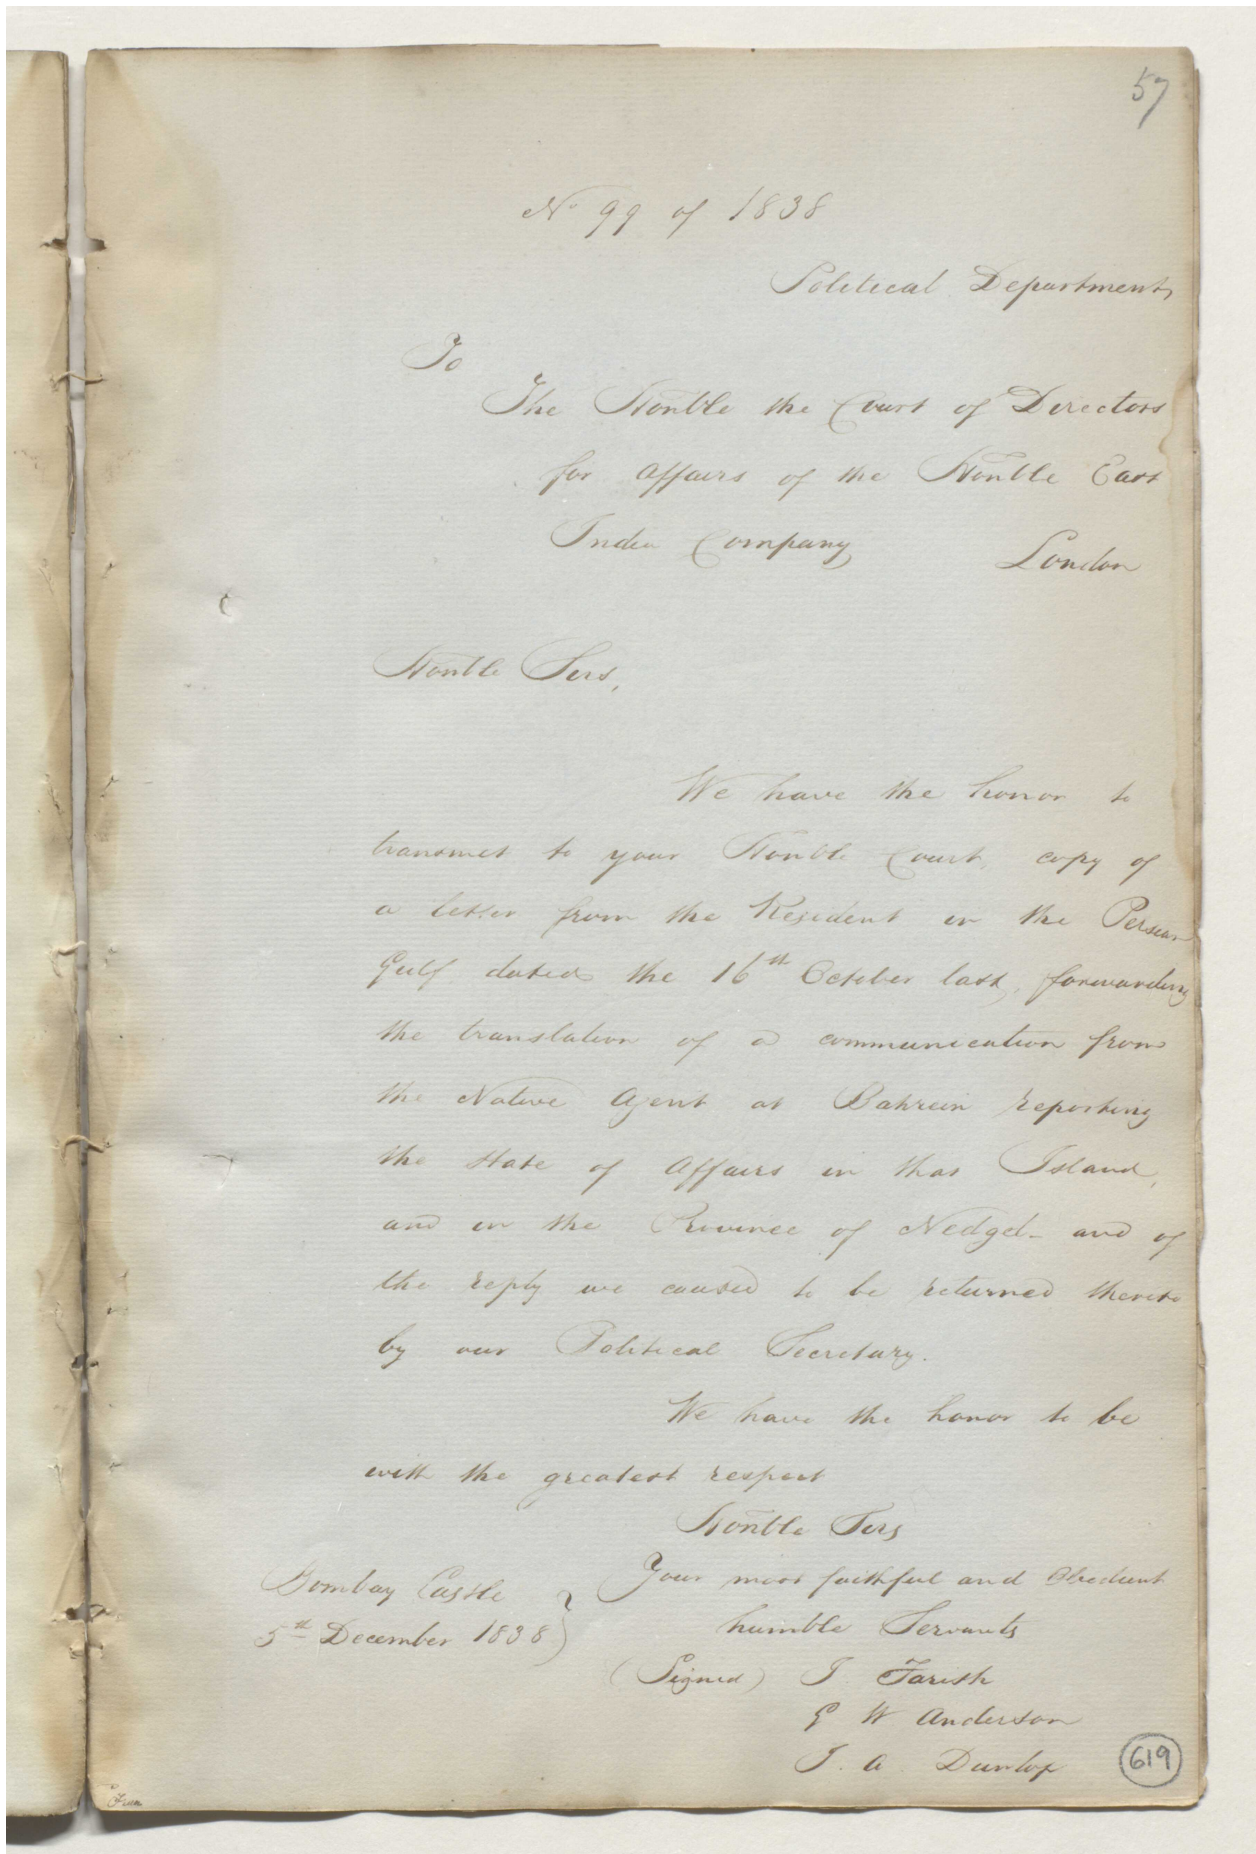 57
No 99 of 1838
Political Department
To
The Honble the Court of Directors
for affairs of the Honble East
India Company
London
Honble Sirs,
We have the honor to
transmit to your Honble Court, copy of
a letter from the Resident in the Persian
Gulf dated the 16th October last, forwarding
the translation of a communication from
the Native Agent at Bahrein reporting
the state of Affairs in that Island,
and in the Province of Nedgd - and of
the reply we caused to be returned thereto
by our Political Secretary.
We have the honor to be
with the greatest respect
Honble Sirs
Your most faithful and Obedient
humble Servants
Bombay Castle
5th December 1838
(Signed) J. Farish
G W Anderson
J. A. Dunlop
619